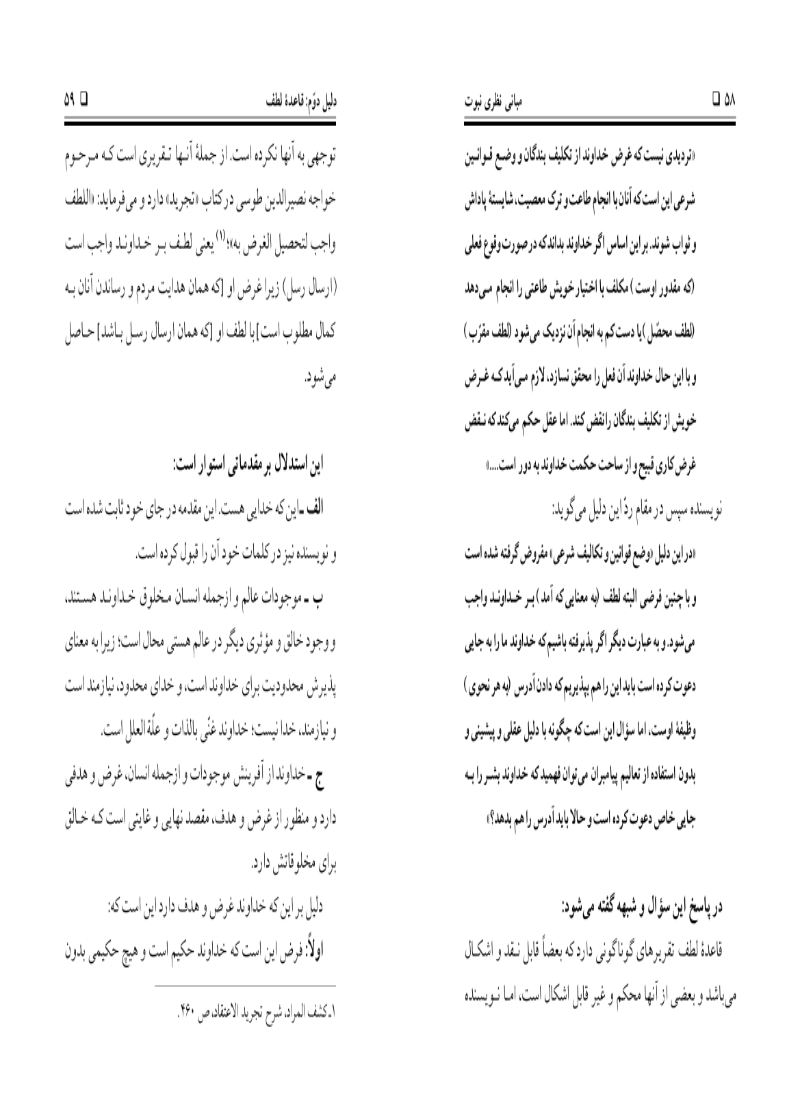 ۵۸ □ مبانی نظری نبوت
«تردیدی نیست که غرض خداوند از تکلیف بندگان و وضع قـوانـین
شرعی این است که آنان با انجام طاعت و ترک معصیت، شایستهٔ پاداش
و ثواب شوند. بر این اساس اگر خداوند بداند که در صورت وقوع فعلی
(که مقدور اوست) مکلف با اختیار خویش طاعتی را انجام مـی‌دهد
(لطف محصّل) یا دست کم به انجام آن نزدیک می‌شود (لطف مقرّب)
و با این حال خداوند آن فعل را محقق نسازد، لازم مـی‌آید کـه غـرض
خویش از تکلیف بندگان را نقض کند. اما عقل حکم می‌کند که نـقض
غرض کاری قبیح و از ساحت حکمت خداوند به دور است....»
نویسنده سپس در مقام ردّ این دلیل می‌گوید:
«در این دلیل «وضع قوانین و تکالیف شرعی» مفروض گرفته شده است
و با چنین فرضی البته لطف (به معنایی که آمد) بـر خـداونـد واجب
می‌شود. و به عبارت دیگر اگر پذیرفته باشیم که خداوند ما را به جایی
دعوت کرده است باید این را هم بپذیریم که دادن آدرس (به هر نحوی)
وظیفهٔ اوست، اما سؤال این است که چگونه با دلیل عقلی و پیشینی و
بدون استفاده از تعالیم پیامبران می‌توان فهمید که خداوند بشـر را بـه
جایی خاص دعوت کرده است و حالا باید آدرس را هم بدهد؟»
در پاسخ این سؤال و شبهه گفته می‌شود:
قاعدهٔ لطف تقریرهای گوناگونی دارد که بعضاً قابل نـقد و اشکـال
می‌باشد و بعضی از آنها محکم و غیر قابل اشکال است، امـا نـویسنده
دلیل دوّم: قاعدهٔ لطف □ ۵۹
توجهی به آنها نکرده است. از جملهٔ آنـها تـقریری است کـه مـرحـوم
خواجه نصیرالدین طوسی در کتاب «تجرید» دارد و می‌فرماید: «اللطف
واجب لتحصیل الغرض به»؛(۱) یعنی لطـف بـر خـداونـد واجب است
(ارسال رسل) زیرا غرض او [که همان هدایت مردم و رساندن آنان بـه
کمال مطلوب است] با لطف او [که همان ارسال رسـل بـاشد] حـاصل
می‌شود.
این استدلال بر مقدماتی استوار است:
الف ـ این که خدایی هست. این مقدمه در جای خود ثابت شده است
و نویسنده نیز در کلمات خود آن را قبول کرده است.
ب ـ موجودات عالم و ازجمله انسـان مـخلوق خـداونـد هسـتند،
و وجود خالق و مؤثری دیگر در عالم هستی محال است؛ زیرا به معنای
پذیرش محدودیت برای خداوند است، و خدای محدود، نیازمند است
و نیازمند، خدا نیست؛ خداوند غنّی بالذات و علّة العلل است.
ج ـ خداوند از آفرینش موجودات و ازجمله انسان، غرض و هدفی
دارد و منظور از غرض و هدف، مقصد نهایی و غایتی است کـه خـالق
برای مخلوقاتش دارد.
دلیل بر این که خداوند غرض و هدف دارد این است که:
اولاً: فرض این است که خداوند حکیم است و هیچ حکیمی بدون
۱ـ کشف المراد، شرح تجرید الاعتقاد، ص ۴۶۰.